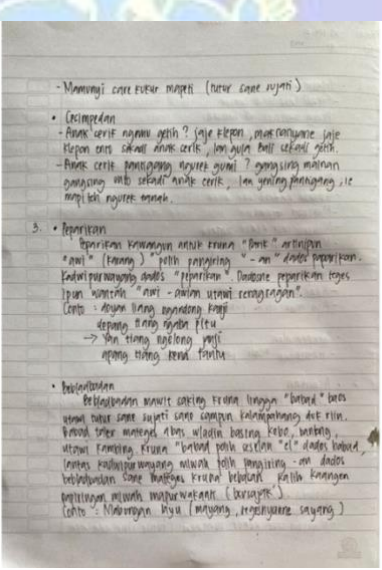 - Mamunyi care kukur mapeti (tutur sane sujati)
• Cecimpedan
- Anak cerik ngamu getih? jaje klepon, makranyane jaje
klepon enis sekadi anak cerik, lan gula bali sekadi getih.
- Anak cerik pantigang ngurek gumi? gangsing mainan
gangsing sekadi anak cerik, lan yening pantigang, ie
ngurek tanah.
3. • Peparikan
Peparikan kawangun antuk kruna "Parik" artinipun
"awi" (karang) polih pangiring "-an" dados paparikan.
Kadwi purwayang dados "peparikan". Dadosne peparikan teges
ipun wantah "awi-awian utawi".
Conto : doyan tiang ngandong kanji
depang tiang ngaba pitu
→ Yan tiang ngolong panji
apang tiang kena tantu
• Bebladbadan
Bebladbadan mawit saking kruna lingga "babad" taos
utawi tutur sane sujati sane sampun kalampahang duk riin.
Babad taler mateges abas wiadin basing kebo, banteng,
utawi kambing. Kruna "babad polih seselan "el" dados babad,
lantas kadwipurwayang miwah polih pangiring -an dados
bebladbadan sane mateges kruna bebasan
miwah mapurwakanti (bersajak)
Conto : Mabungan layu (mayang, sayang)